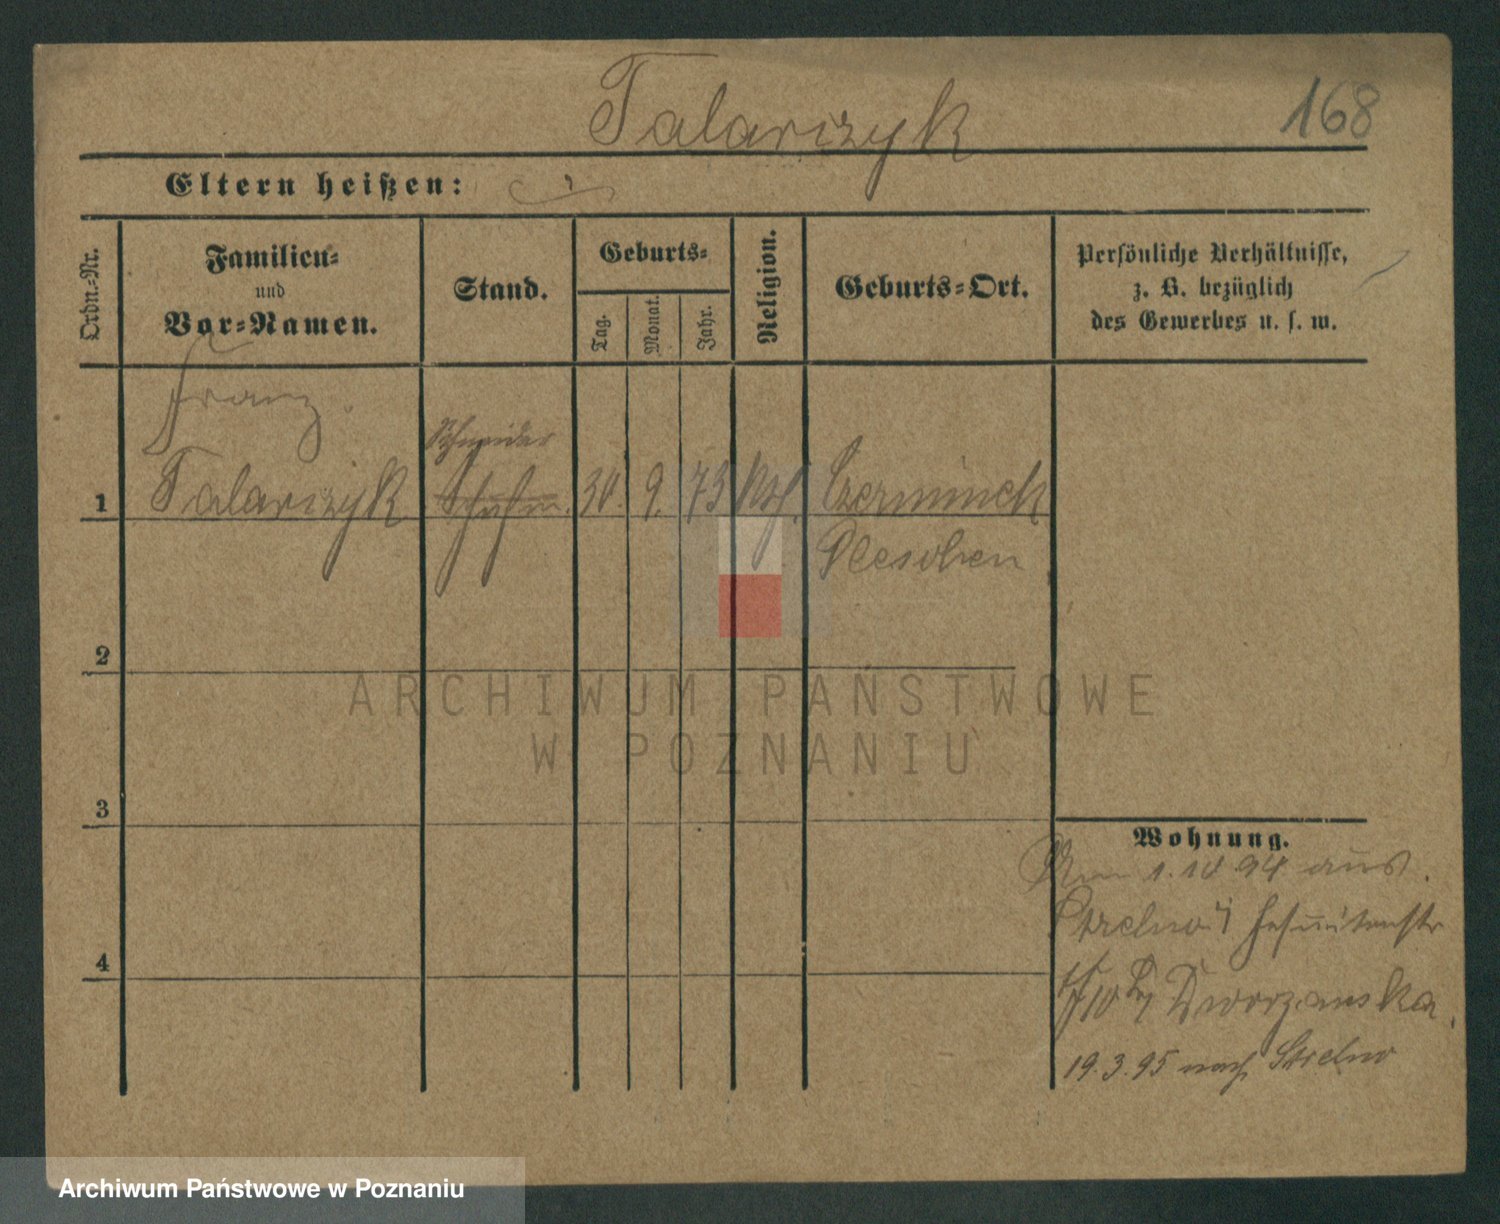 Talarczyk
168
Eltern heißen:
Ordn.-Nr.
Familien-
und
Vor-Namen.
Stand.
Geburts-
Tag.
Monat.
Jahr.
Religion.
Geburts-Ort.
Persönliche Verhältnisse,
z. B. bezüglich
des Gewerbes u. s. w.
Franz
Schneider
1 Talarczyk Schuhm. 30. 9. 73 kth. Czerminek
Pleschen
2
3
4
ARCHIWUM PAŃSTWOWE
W POZNANIU
Wohnung.
Am 1.10 94 aus
Strelno Jesuitenstr
10 Dworzanska
19.3.95 nach Strelno
Archiwum Państwowe w Poznaniu